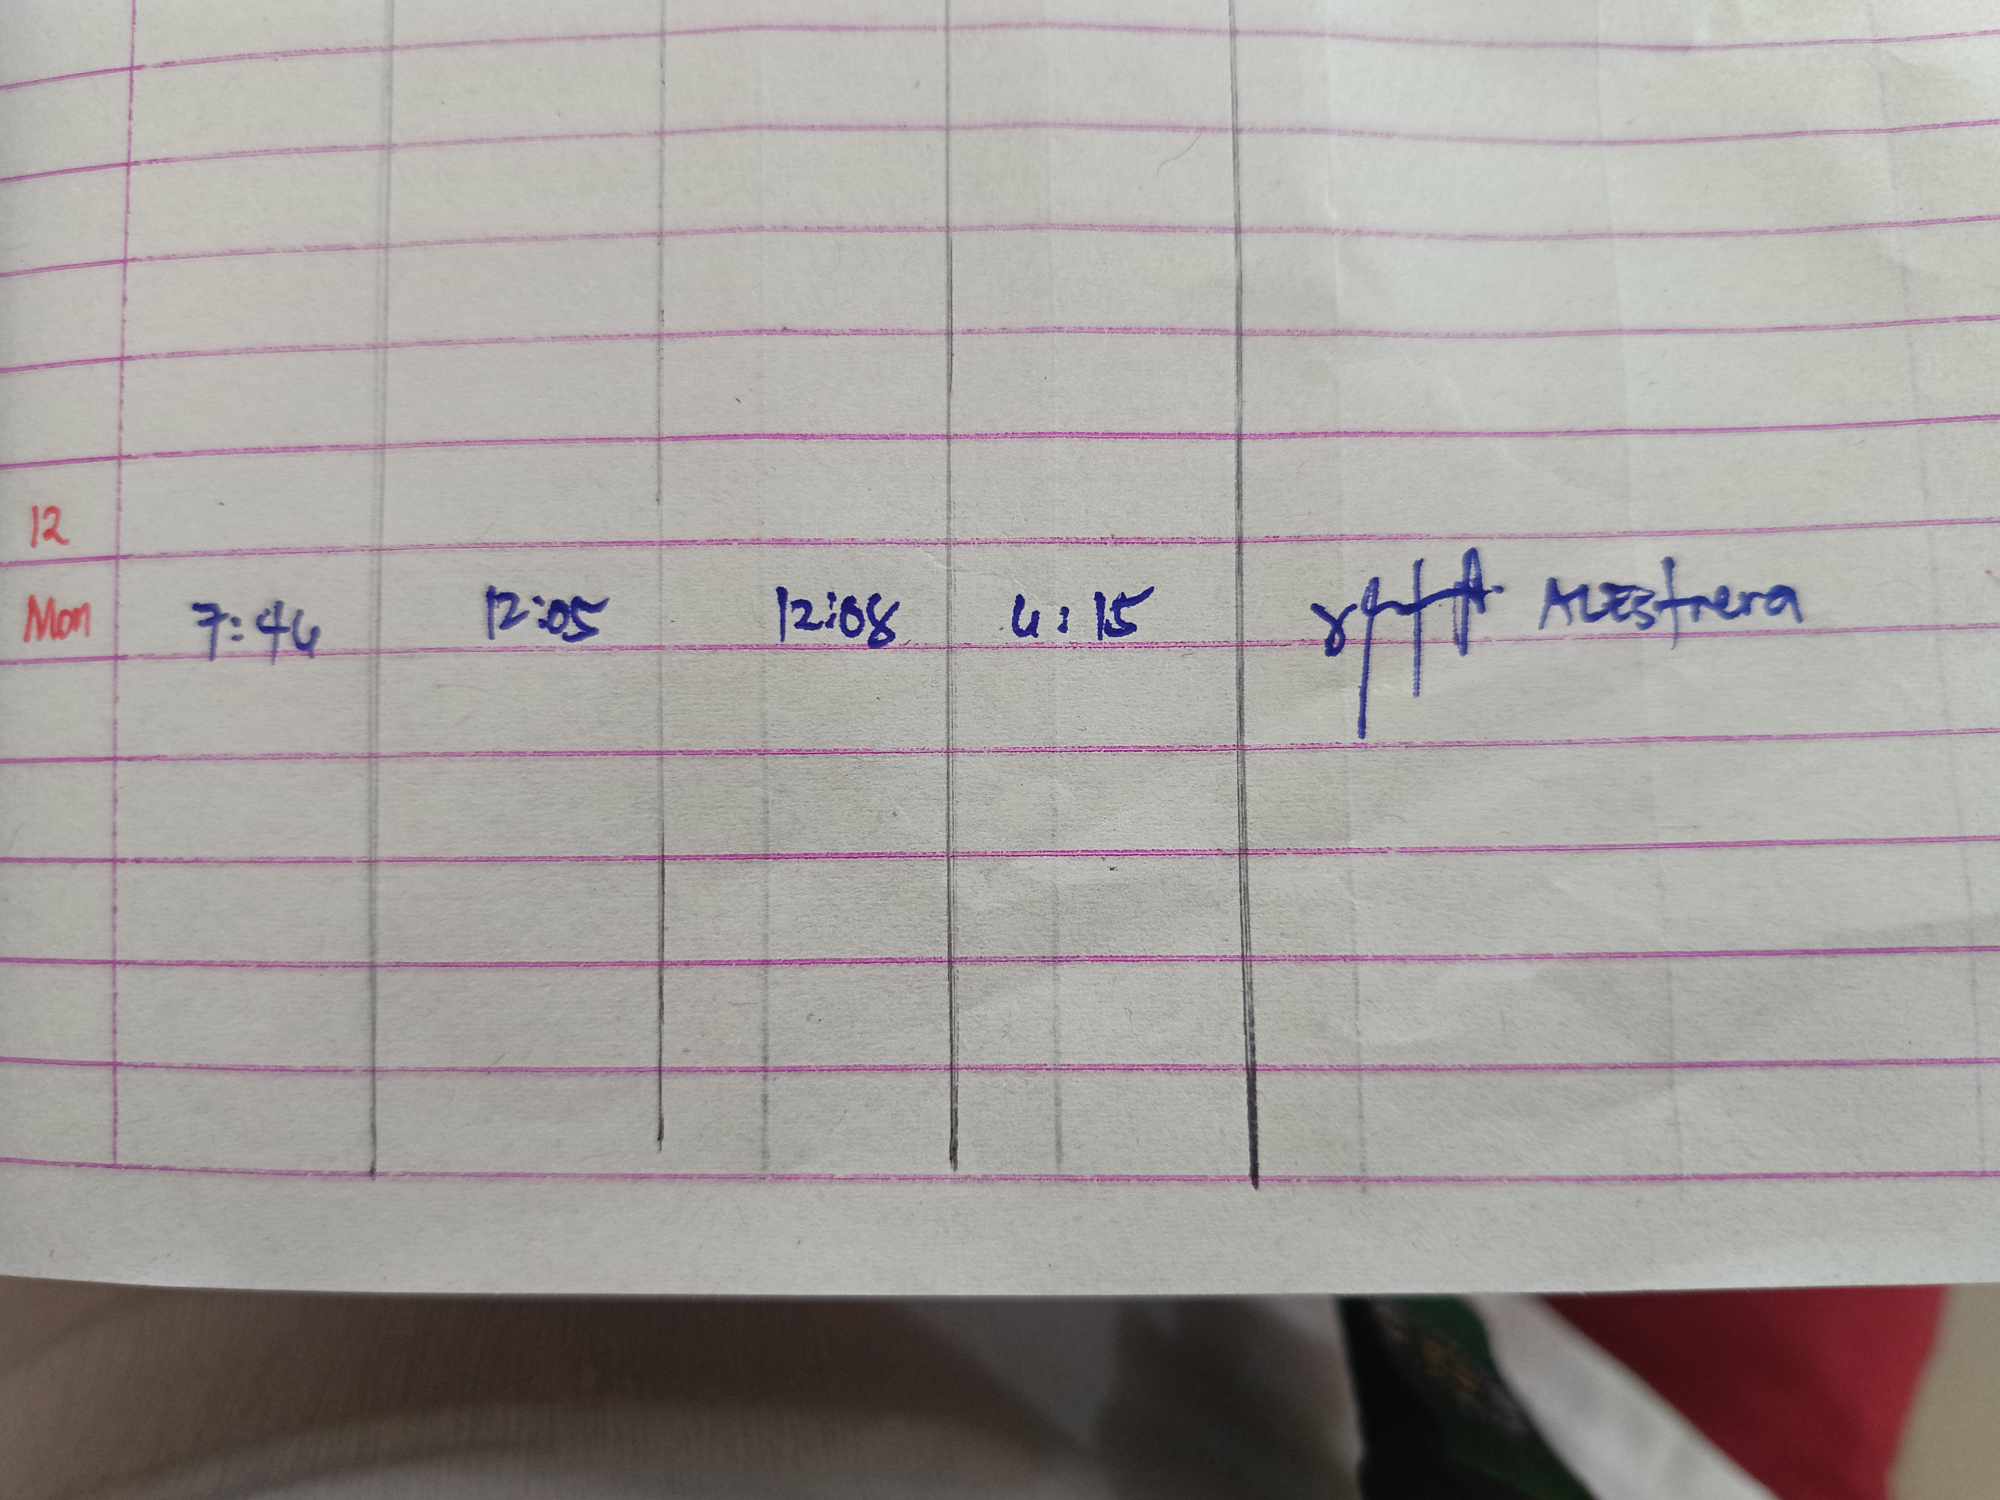 12
Mon 7:44 12:05 12:08 4:15 ALEstrera